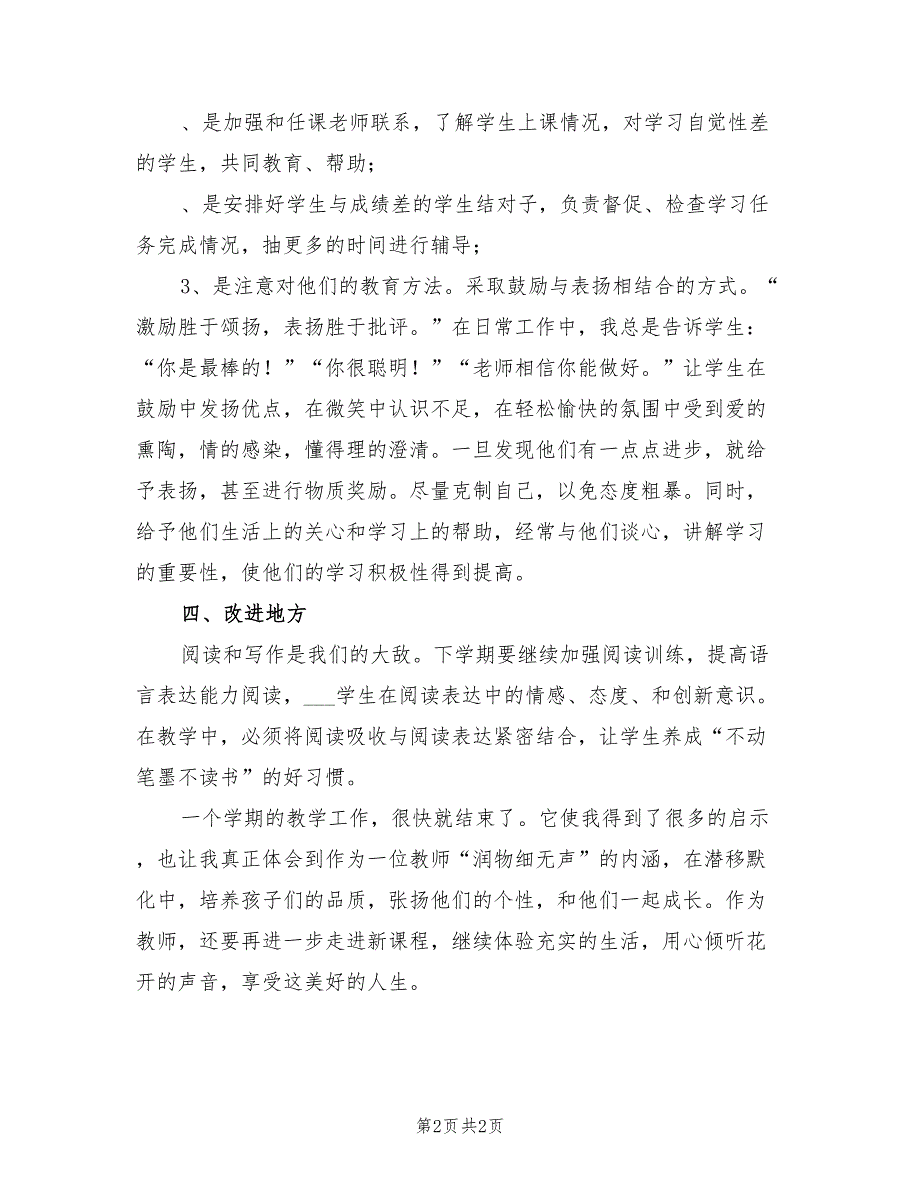 、是加强和任课老师联系，了解学生上课情况，对学习自觉性差
的学生，共同教育、帮助；
、是安排好学生与成绩差的学生结对子，负责督促、检查学习任
务完成情况，抽更多的时间进行辅导；
3、是注意对他们的教育方法。采取鼓励与表扬相结合的方式。“
激励胜于颂扬，表扬胜于批评。”在日常工作中，我总是告诉学生：
“你是最棒的！”“你很聪明！”“老师相信你能做好。”让学生在
鼓励中发扬优点，在微笑中认识不足，在轻松愉快的氛围中受到爱的
熏陶，情的感染，懂得理的澄清。一旦发现他们有一点点进步，就给
予表扬，甚至进行物质奖励。尽量克制自己，以免态度粗暴。同时，
给予他们生活上的关心和学习上的帮助，经常与他们谈心，讲解学习
的重要性，使他们的学习积极性得到提高。
四、改进地方
阅读和写作是我们的大敌。下学期要继续加强阅读训练，提高语
言表达能力阅读，___学生在阅读表达中的情感、态度、和创新意识。
在教学中，必须将阅读吸收与阅读表达紧密结合，让学生养成“不动
笔墨不读书”的好习惯。
一个学期的教学工作，很快就结束了。它使我得到了很多的启示
，也让我真正体会到作为一位教师“润物细无声”的内涵，在潜移默
化中，培养孩子们的品质，张扬他们的个性，和他们一起成长。作为
教师，还要再进一步走进新课程，继续体验充实的生活，用心倾听花
开的声音，享受这美好的人生。
第2页 共2页